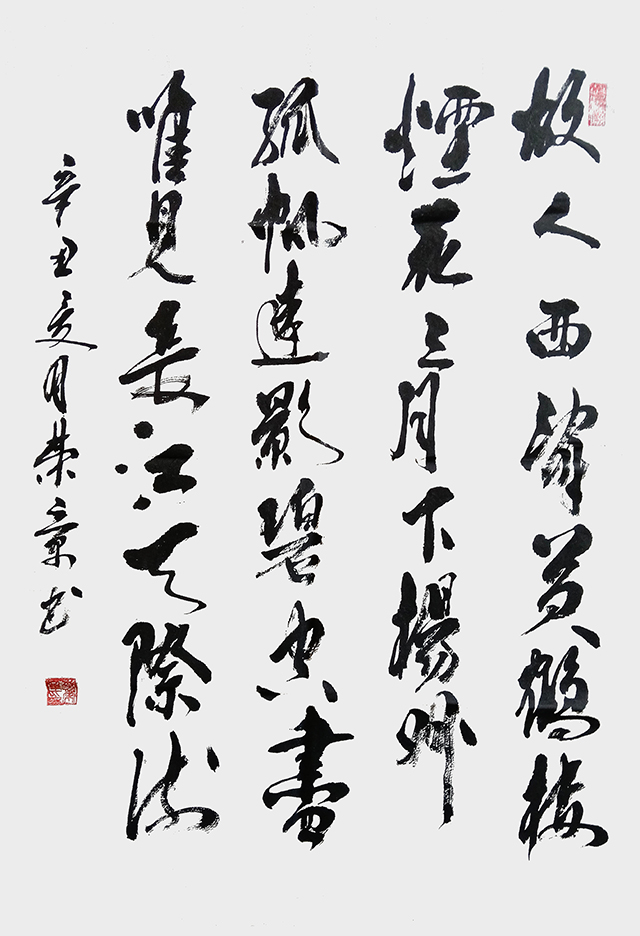 故人西辞黄鹤楼
煙花三月下揚州
孤帆遠影碧空盡
唯見長江天際流
辛丑夏月荣章书